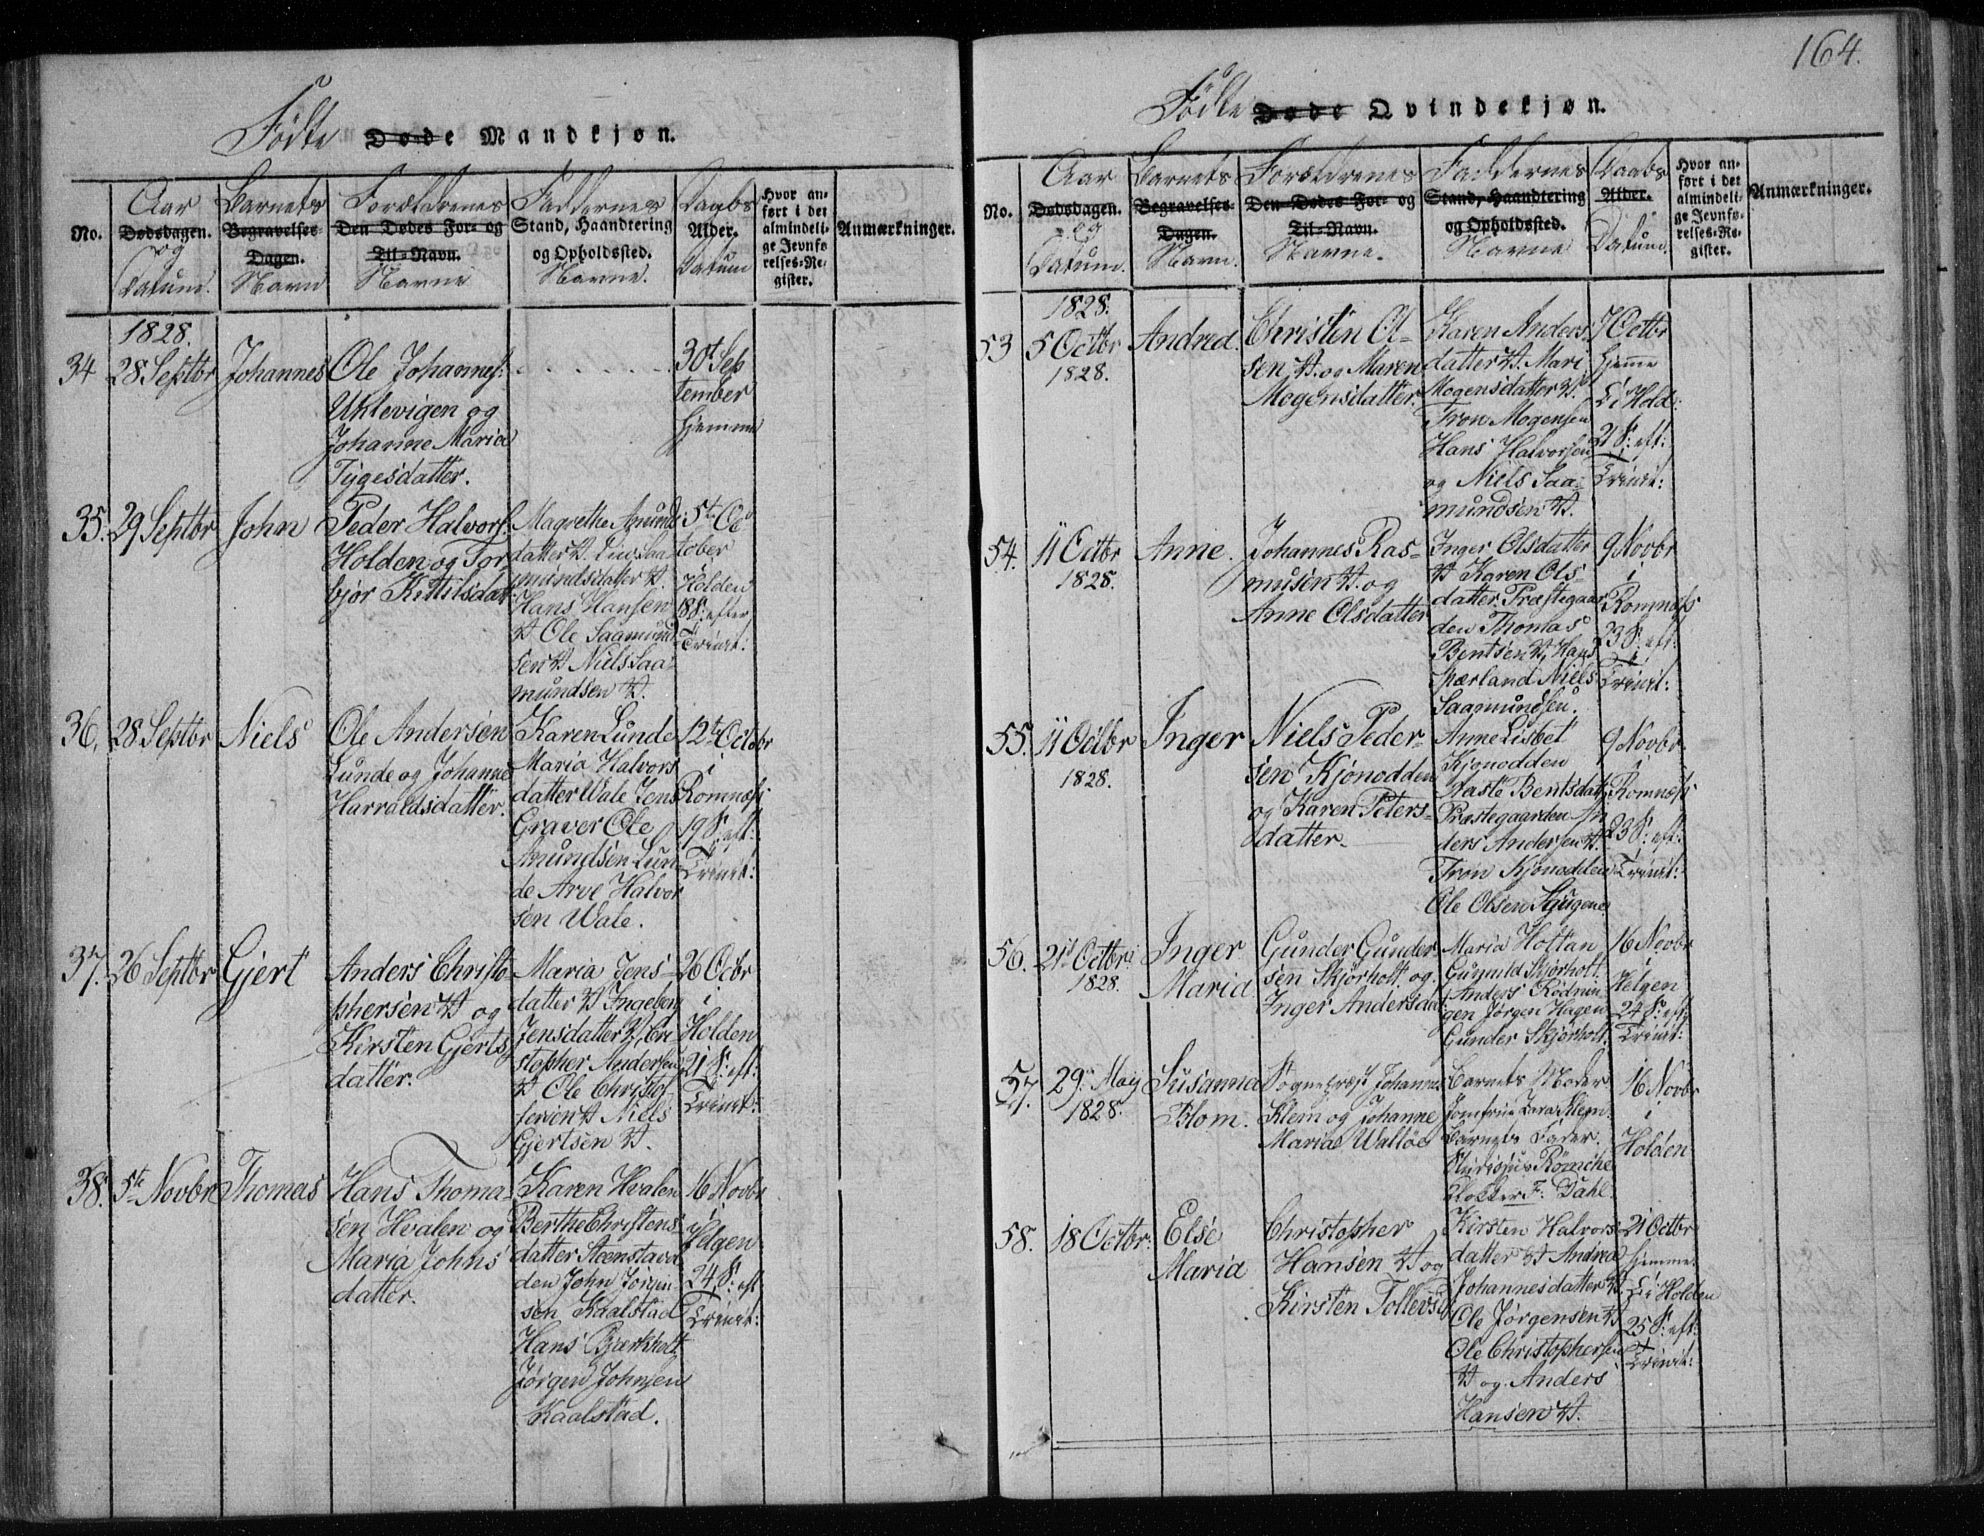 164.
Födte Døde Mandkjøn.
No.
Aar
Dødsdagen.
og
Datum.
Barnets
Begravelses-
Dagen.
Navn
Forældrenes
Den Dødes For- og
Til-Navn.
Navne
Faddernes
Stand, Haandtering
og Opholdssted.
Navne.
Daabs
Alder.
Datum
Hvor an-
ført i det
almindeli-
ge Jevnfø
relses-Re-
gister.
Anmærkninger.
1828.
34
28 Septbr
Johannes
Ole Johannes:
Uklevigen og
Johanne Maria
Tygesdatter.
30t Sep
tember
Hjemme
35.
29 Septbr
John
Peder Halvors:
Holden og Tor
bjør Kittilsdat:
Magrethe Amunds
datter
mundsdatter
Hans Hansen
Ole Saamund
sen Niels Saa-
mundsen
5t Oc
tober
i
Holden
18 S: efter
Trinit:
36.
28 Septbr
Niels
Ole Andersen
Lunde og Johanne
Harraldsdatter.
Karen Lunde
Maria Halvors
datter Wale Jens
Graver Ole
Amundsen Lun
de Arve Halvor
sen Wale.
12t Octobr
i
Romnæss
19 S: eft:
Trinit:
37.
26 Septbr
Gjert
Anders Christo
phersen og
Kirsten Gjerts
datter.
Maria Jens-
datter Ingeborg
Jensdatter Cri
stopher Andersen
Ole Christof
fersen Niels
Gjertsen
26 Octbr
i
Holden
21 S: eft:
Trinit:
38.
5te Novbr
Thomas
Hans Thoma-
sen Hvalen og
Maria Johns
datter.
Karen Hvalen
Berthe Christens
datter Steenstad
den John Jørgen
sen Kaalstad
Hans Bjærkholt
Jørgen Johnsen
Kaalstad.
16 Novbr
i
Helgen
24 S: eft
Trinit:
Födte Døde Qvindekjøn.
No.
Aar
Dødsdagen.
og
Datum.
Barnets
Begravelses-
Dagen.
Navn.
Forældrenes
Den Dødes For- og
Til-Navn.
Navne.
Faddernes
Stand, Haandtering
og Opholdssted.
Navne
Daabs
Alder.
Datum.
Hvor an-
ført i det
almindeli-
ge Jevnfø-
relses-Re-
gister.
Anmærkninger.
1828.
53
5 Octbr
1828.
Andrea.
Christen Ol-
sen og Maren
Mogensdatter.
Karen Anders
datter Mari
Mogensdatter
Tron Mogensen
Hans Halvorsen
og Niels Saa-
mundsen
7 Octbr
Hjeme
i Hold:
21 S: eft:
Trinit:
54.
11 Octbr
1828.
Anne.
Johannes Ras-
musen og
Anne Olsdatter
Inger Olsdatter
Karen Ols-
datter Præstegaar
den Thomas
Bentsen Hans
Spærland Niels
Saamundsen.
9 Novbr
i
Romnæss
23 S: eft:
Trinit:
55.
11 Octbr
1828.
Inger
Niels Peder-
sen Kjönodden
og Karen Peters-
datter.
Anne Lisbet
Kjönodden
Aaste Bentsdat
Præstegaarden An
ders Andersen
Tron Kjönodden
Ole Olsen Stjugene
9 Novbr
i
Romnæss
23 S: eft:
Trinit:
56.
21d Octbr
1828.
Inger
Maria
Gunder Gunder
sen Skjørholt og
Inger Andersdat
Maria Holtan
Gunnild Skjørholt
Anders Rödnin
gen Jørgen Hagen
Gunder Skjørholt.
16 Novbr
i
Helgen
24 S: eft:
Trinit:
57.
29. May
1828.
Susanna
Blom.
Sognepræst Johannes
Klem og Johanne
Maria Walløe
Barnets Moder
Jomfrue Lara Klem.
Barnets Fader.
Studiosus Rømcke
Klokker F: Dahl.
16 Novbr
i
Holden
58.
18 Octbr:
Else
Maria
Christopher
Hansen og
Kirsten Tollevsd
Kirsten Halvors
datter Andrea
Johannesdatter
Ole Jørgensen
Ole Christophersen
og Anders
Hansen
21 Octbr
Hjemme
i Holden
25 S: eft:
Trinit: